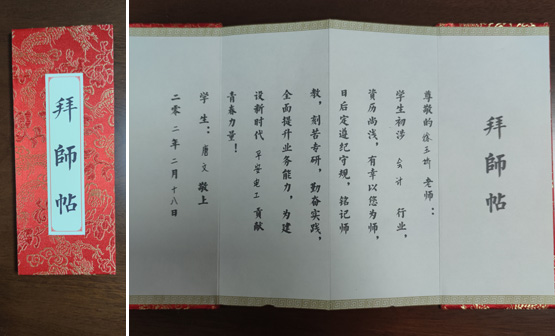 拜師帖
拜師帖
尊敬的 老师：
学生初涉 会计 行业，
资历尚浅，有幸以您为师，
日后定遵纪守规，铭记师
教，刻苦专研，勤奋实践，
全面提升业务能力，为建
设新时代 贡献
青春力量！
学生：唐文 敬上
二零二年二月十八日